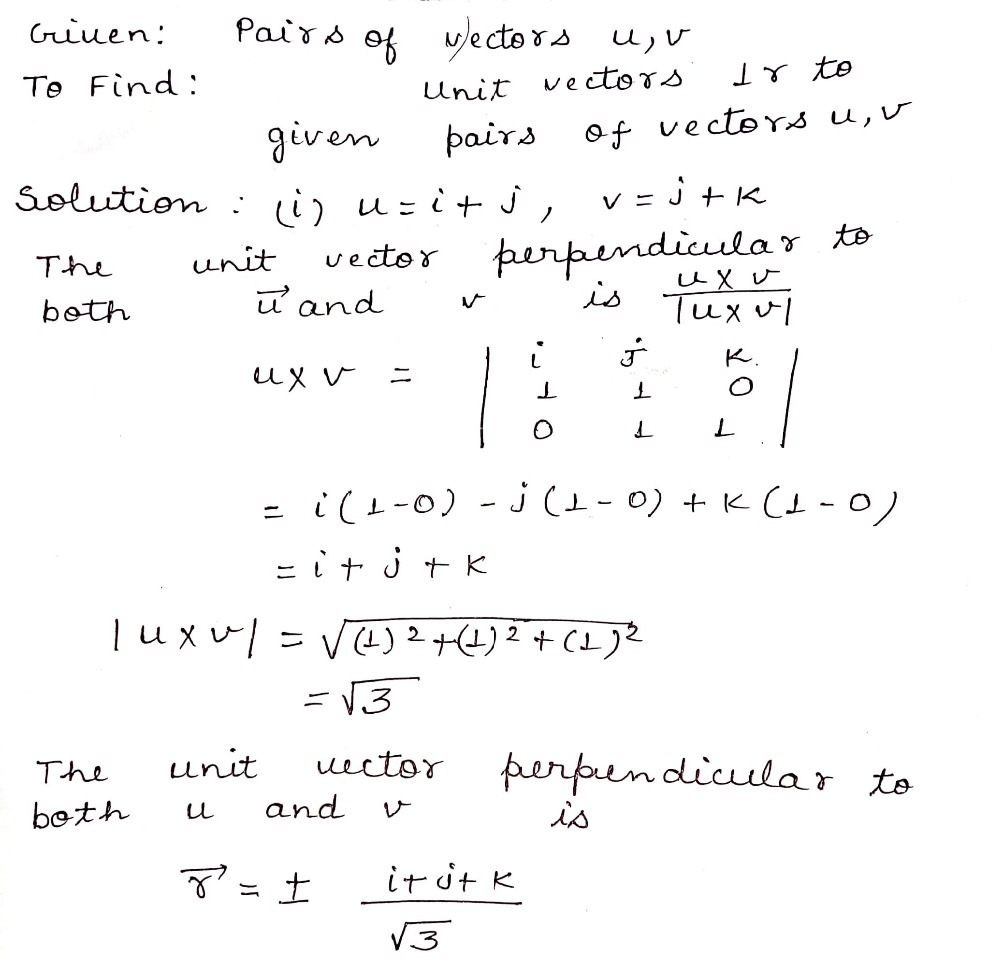 Given: Pairs of vectors u, v
To Find: unit vectors ⊥r to
given pairs of vectors u, v
Solution : (i) u = i + j, v = j + k
The unit vector perpendicular to
both u⃗ and v is (u × v)/|u × v|
u × v = | i j k. |
| 1 1 0 |
| 0 1 1 |
= i(1-0) - j(1-0) + k(1-0)
= i + j + k
|u × v| = √((1)² + (1)² + (1)²)
= √3
The unit vector perpendicular to
both u and v is
r⃗ = ± (i + j + k)/√3